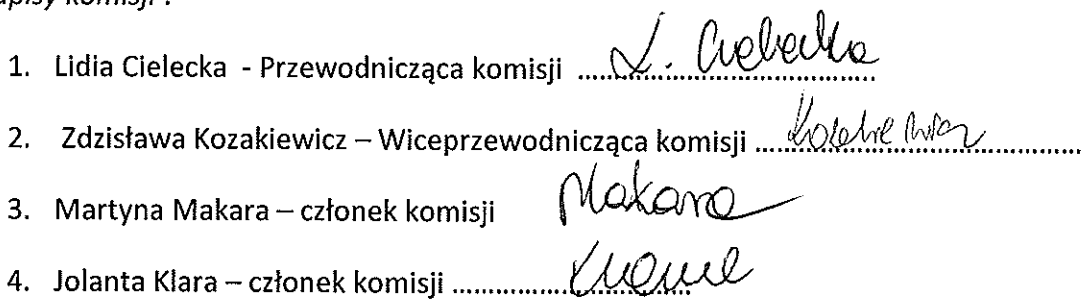 pisy komisji :
1. Lidia Cielecka - Przewodnicząca komisji ..... L. Cielecka
2. Zdzisława Kozakiewicz – Wiceprzewodnicząca komisji ..... Kozakiewicz
3. Martyna Makara – członek komisji Makara
4. Jolanta Klara – członek komisji ...............